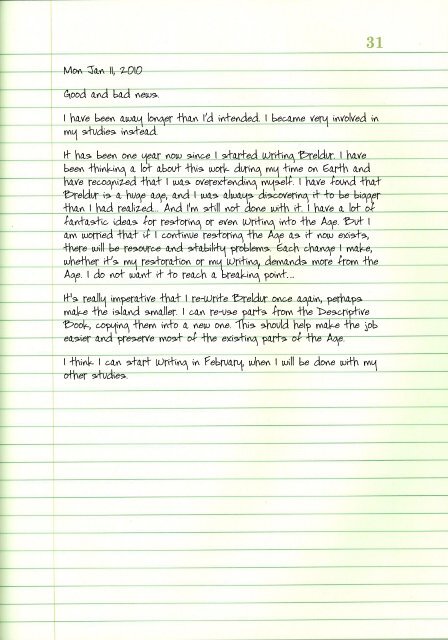 31
Mon Jan 11, 2010
Good and bad news.
I have been away longer than I'd intended. I became very involved in
my studies instead.
It has been one year now since I started Writing Breldur. I have
been thinking a lot about this work during my time on Earth and
have recognized that I was overextending myself. I have found that
Breldur is a huge age, and I was always discovering it to be bigger
than I had realized... And I'm still not done with it. I have a lot of
fantastic ideas for restoring or even Writing into the Age. But I
am worried that if I continue restoring the Age as it now exists,
there will be resource and stability problems. Each change I make,
whether it's my restoration or my Writing, demands more from the
Age. I do not want it to reach a breaking point...
It's really imperative that I re-Write Breldur once again, perhaps
make the island smaller. I can re-use parts from the Descriptive
Book, copying them into a new one. This should help make the job
easier and preserve most of the existing parts of the Age.
I think I can start Writing in February, when I will be done with my
other studies.